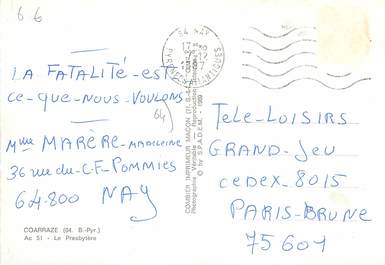 66
LA FATALITÉ-est-
ce-que-NOUS-VOULONS
64)
Mme MARÈRE-MADELEINE
36 rue du-C.F-POMMIES
64-800 NAY
COARRAZE (64. B.-Pyr.)
Ac 51 - Le Presbytère
COMBIER IMPRIMEUR MACON
© by S.P.A.D.E.M.
64 NAY
PYRENEES-ATLANTIQUES
TeLe-LOISIRS
GRAND-Jeu
ceDeX-8015
PARIS-BRUNE
75601